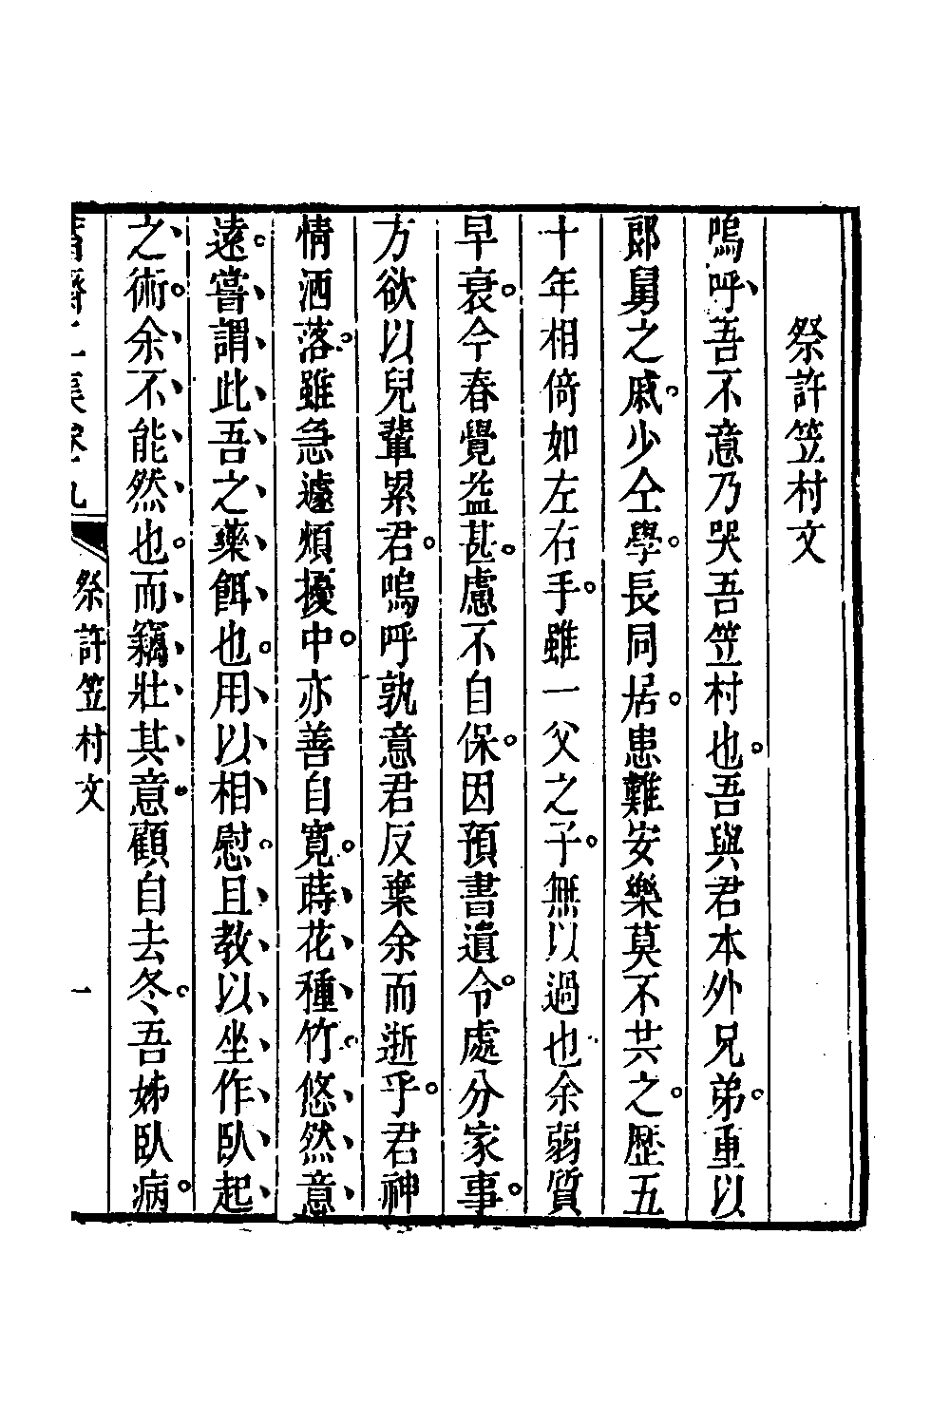 祭許笠村文
嗚呼吾不意乃哭吾笠村也。吾與君本外兄弟。重以
郎舅之戚。少仝學。長同居。患難安樂莫不共之。歷五
十年相倚如左右手。雖一父之子。無以過也。余弱質
早衰。今春覺益甚。慮不自保。因預書遺令。處分家事。
方欲以兒輩累君。嗚呼孰意君反棄余而逝乎。君神
情洒落。雖急遽煩擾中。亦善自寬。蒔花種竹。悠然意
遠。嘗謂此吾之藥餌也。用以相慰。且教以坐作臥起
之術。余不能然也。而竊壯其意。顧自去冬。吾姊臥病。
齋二集卷九
祭許笠村文
一